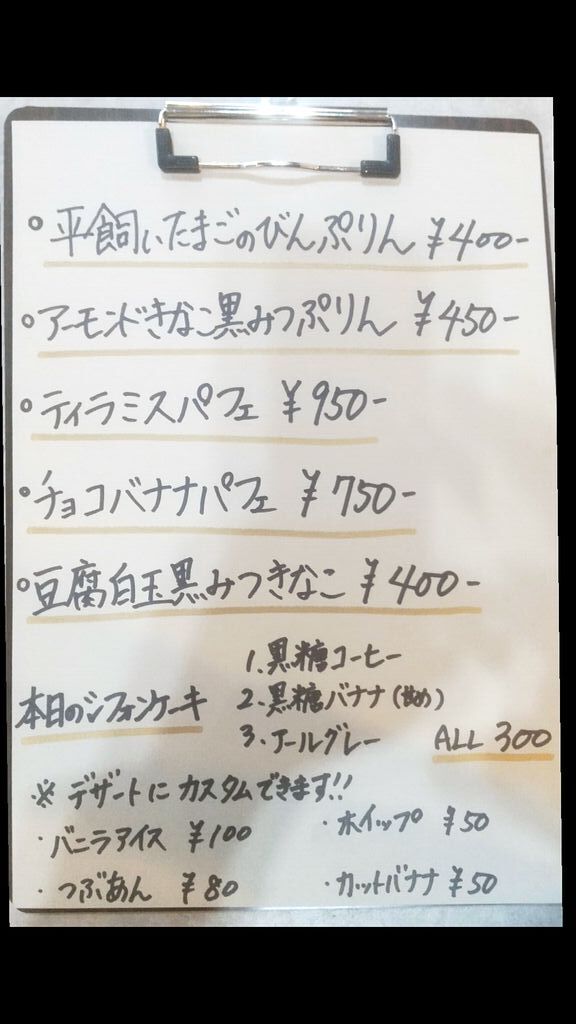 ○平飼いたまごのびんぷりん ¥400-
○アーモンドきなこ黒みつぷりん ¥450-
○ティラミスパフェ ¥950-
○チョコバナナパフェ ¥750-
○豆腐白玉黒みつきなこ ¥400-
本日のシフォンケーキ
1.黒糖コーヒー
2.黒糖バナナ(甘め)
3.アールグレー ALL 300
※デザートにカスタムできます!!
・バニラアイス ¥100 ・ホイップ ¥50
・つぶあん ¥80 ・カットバナナ ¥50